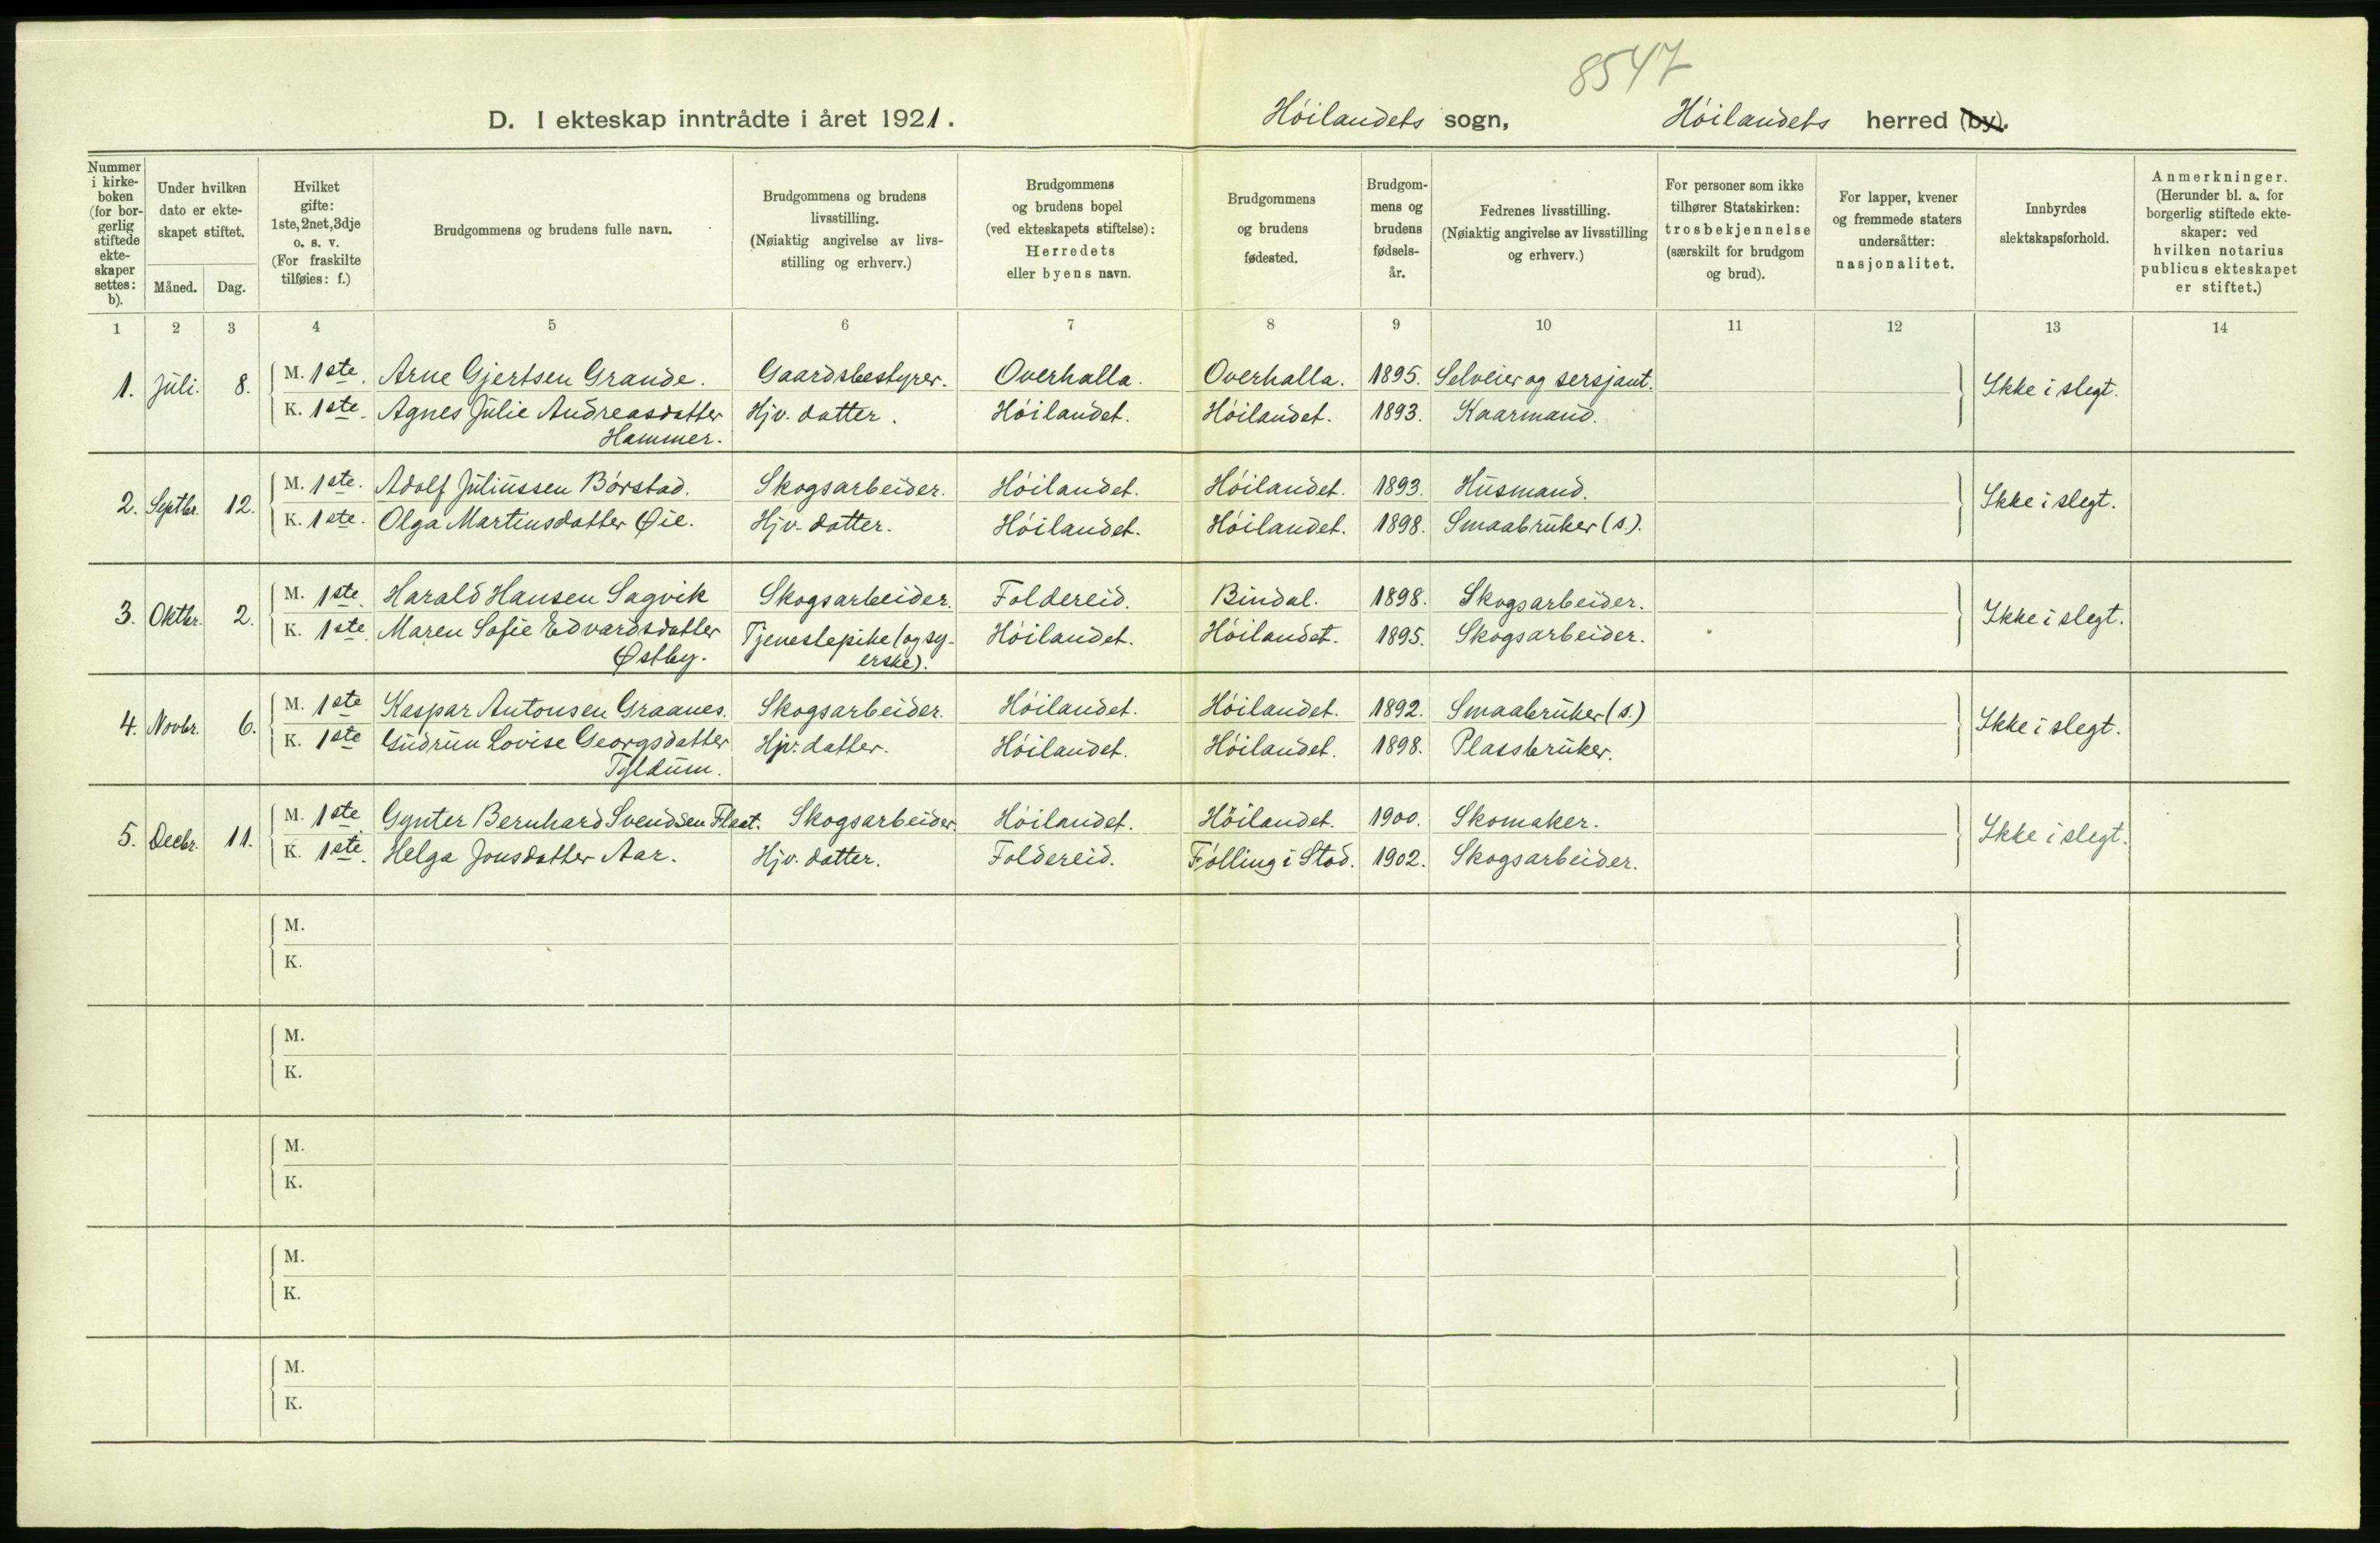 8547
D. I ekteskap inntrådte i året 1921. Höilandets sogn, Höilandets herred (by).
Nummer i kirkeboken (for borgerlig stiftede ekteskaper settes: b).
Under hvilken dato er ekteskapet stiftet.
Måned. Dag.
Hvilket gifte: 1ste, 2net, 3dje o. s. v. (For fraskilte tilføies: f.)
Brudgommens og brudens fulle navn.
Brudgommens og brudens livsstilling. (Nøiaktig angivelse av livsstilling og erhverv.)
Brudgommens og brudens bopel (ved ekteskapets stiftelse): Herredets eller byens navn.
Brudgommens og brudens fødested.
Brudgommens og brudens fødselsår.
Fedrenes livsstilling. (Nøiaktig angivelse av livsstilling og erhverv.)
For personer som ikke tilhører Statskirken: trosbekjennelse (særskilt for brudgom og brud).
For lapper, kvener og fremmede staters undersåtter: nasjonalitet.
Innbyrdes slektskapsforhold.
Anmerkninger. (Herunder bl. a. for borgerlig stiftede ekteskaper: ved hvilken notarius publicus ekteskapet er stiftet.)
1 2 3 4 5 6 7 8 9 10 11 12 13 14
1. Juli. 8. M. 1ste. Arne Gjertsen Grande. Gaardsbestyrer. Overhalla. Overhalla. 1895. Selveier og sersjant. Ikke i slegt.
K. 1ste. Agnes Julie Andreasdatter Hjv. datter. Höilandet. Höilandet. 1893. Kaarmand.
Hammer.
2. Septbr. 12. M. 1ste. Adolf Juliussen Börstad. Skogsarbeider. Höilandet. Höilandet. 1893. Husmand. Ikke i slegt.
K. 1ste. Olga Martinsdatter Øie. Hjv. datter. Höilandet. Höilandet. 1898. Smaabruker (s.).
3. Oktbr. 2. M. 1ste. Harald Hansen Sagvik Skogsarbeider. Foldereid. Bindal. 1898. Skogsarbeider. Ikke i slegt.
K. 1ste. Maren Sofie Edvardsdatter Tjenestepike (og sy- Höilandet. Höilandet. 1895. Skogsarbeider.
Østby. erske).
4. Novbr. 6. M. 1ste Kaspar Antonsen Graanes. Skogsarbeider. Höilandet. Höilandet. 1892. Smaabruker (s.) Ikke i slegt.
K. 1ste Gudrun Lovise Georgsdatter Hjv. datter. Höilandet. Höilandet. 1898. Plassbruker.
Tyldum.
5. Decbr. 11. M. 1ste Gynter Bernhard Svendsen Flaat. Skogsarbeider. Höilandet. Höilandet. 1900. Skomaker. Ikke i slegt.
K. 1ste. Helga Jonsdatter Aar. Hjv. datter. Foldereid. Fölling i Stod. 1902. Skogsarbeider.
M.
K.
M.
K.
M.
K.
M.
K.
M.
K.